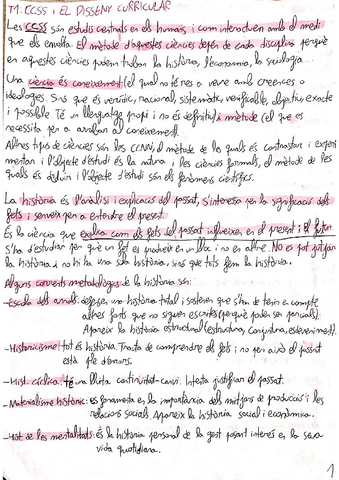 T1: CCSS I EL DISSENY CURRICULAR
Les CCSS són estudis centrats en els humans, i com interactuen amb el medi
que els envolta. El mètode d'aquestes ciències depèn de cada disciplina perquè
en aquestes ciències podem trobar la història, l'economia, la sociologia...
Una ciència és coneixement (el qual no té res a veure amb creences o
ideologies. Sinó que és verídic, racional, sistemàtic, verificable, objectiu, exacte
i possible. Té un llenguatge propi i no és definitiu) i mètode (el que es
necessita per a arribar al coneixement).
Altres tipus de ciències són les CCNN, el mètode de les quals és contrastar i experi
mentar i l'objecte d'estudi és la natura i les ciències formals, el mètode de les
quals és deduir i l'objecte d'estudi són els fenòmens científics.
La història és l'anàlisi i explicació del passat, s'interessa per la significació dels
fets i serveix per a entendre el present.
És la ciència que explica com els fets del passat influeixen en el present i el futur.
S'ha d'estudiar per què un fet es produeix en un lloc i no en altre. NO es pot jutjar
la història i no hi ha una sola història, sinó que tots fem la història.
Alguns corrents metodològics de la història són:
- Escola dels annals: defensa una història total i sostenen que s'han de tenir en compte
altres fonts que no siguen escrites (perquè poden ser parcials).
Apareix la història estructural (estructura, conjuntura, esdeveniment).
- Historicisme: tot és història. Tracta de comprendre els fets i no per això el passat
està ple d'errors.
- Hist. cíclica: té una lluita continuïtat-canvi. Intenta justificar el passat.
- Materialisme històric: es fonamenta en la importància dels mitjans de producció i les
relacions socials. Apareix la història social i econòmica.
- Hist. de les mentalitats: és la història personal de la gent posant interés en la seva
vida quotidiana.
1